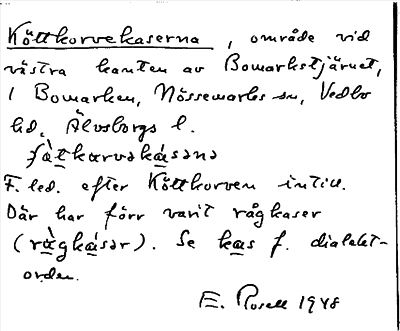 Köttkorvekaserna, område vid
västra kanten av Bomarkstjärnet,
i Bomarken, Nössemarks sn, Vedbo
hd, Älvsborgs l.
F. led. efter Köttkorven intill.
Där har förr varit rågkaser
(rågkasər). Se kas f. dialekt-
orden.
E. Rosell 1948